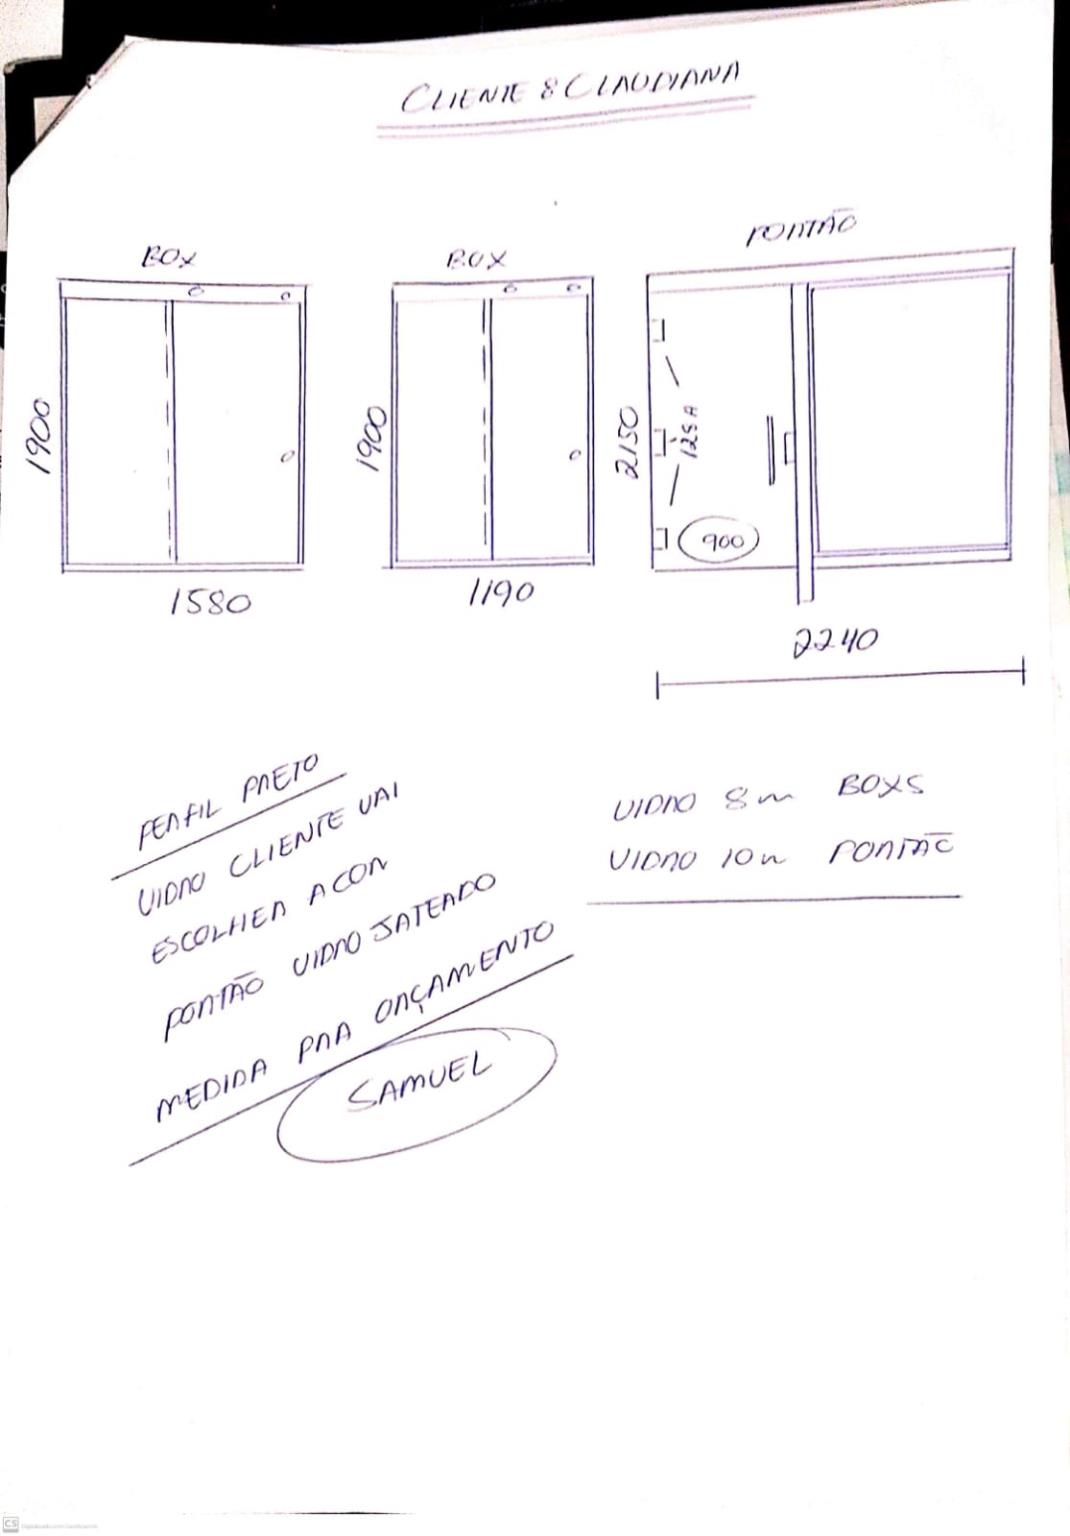 CLIENTE : CLAUDIANA
BOX
BOX
PORTÃO
1900
1900
2150
125A
900
1580
1190
2240
PERFIL PRETO
VIDRO CLIENTE VAI
ESCOLHER A COR
PORTÃO VIDRO JATEADO
MEDIDA PRA ORÇAMENTO
SAMUEL
VIDRO 8m BOXS
VIDRO 10m PORTÃO
CS